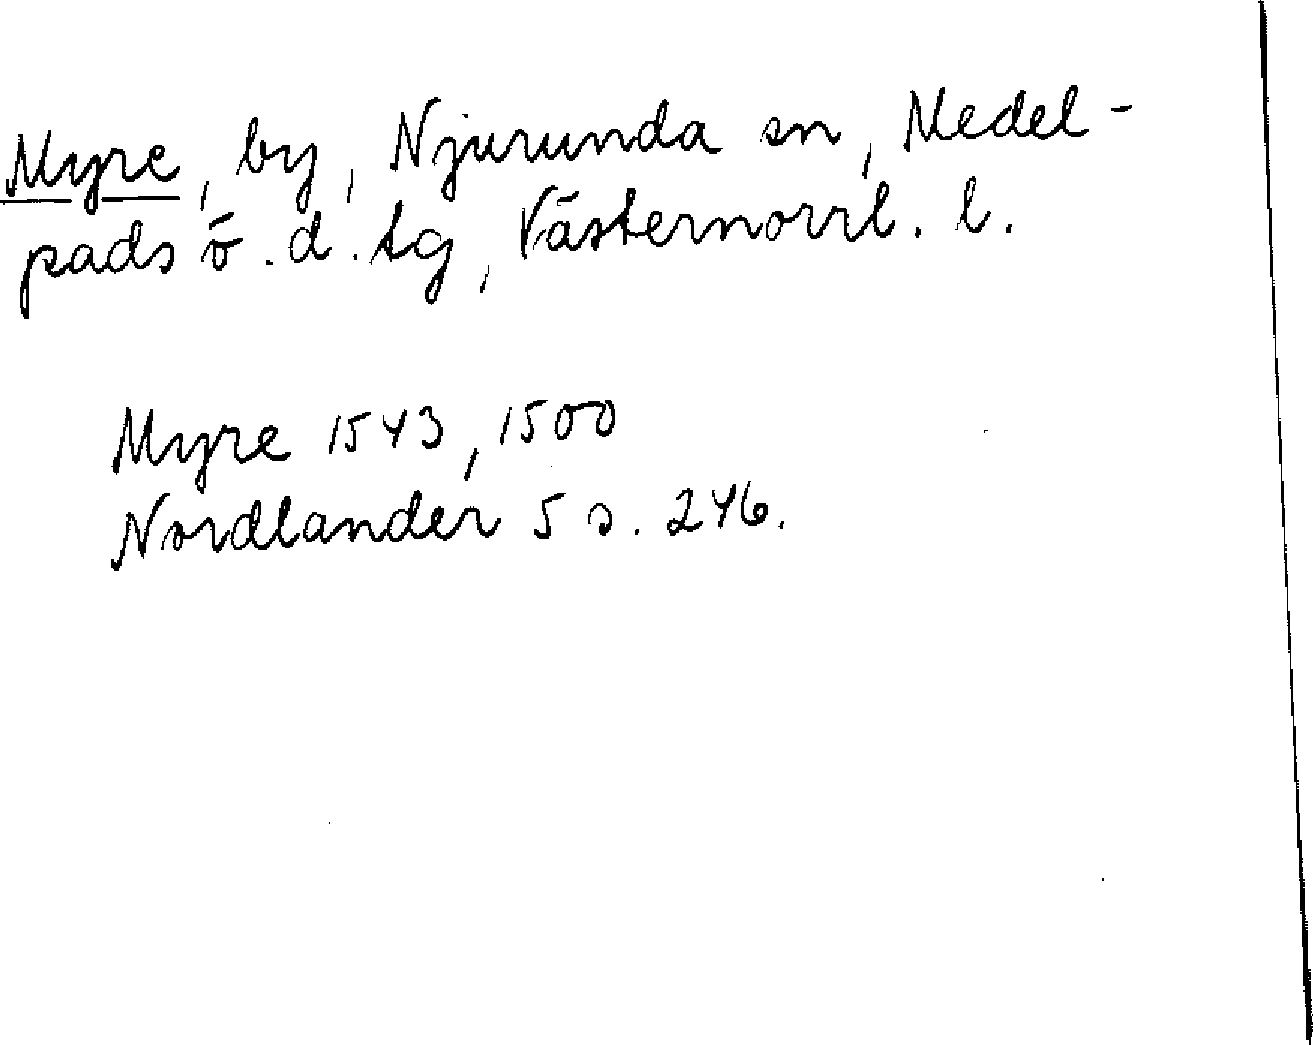 Myre, by, Njurunda sn, Medel-
pads ö.d.tg, Västernorrl. l.
Myre 1543, 1500
Nordlander 5 s. 246.